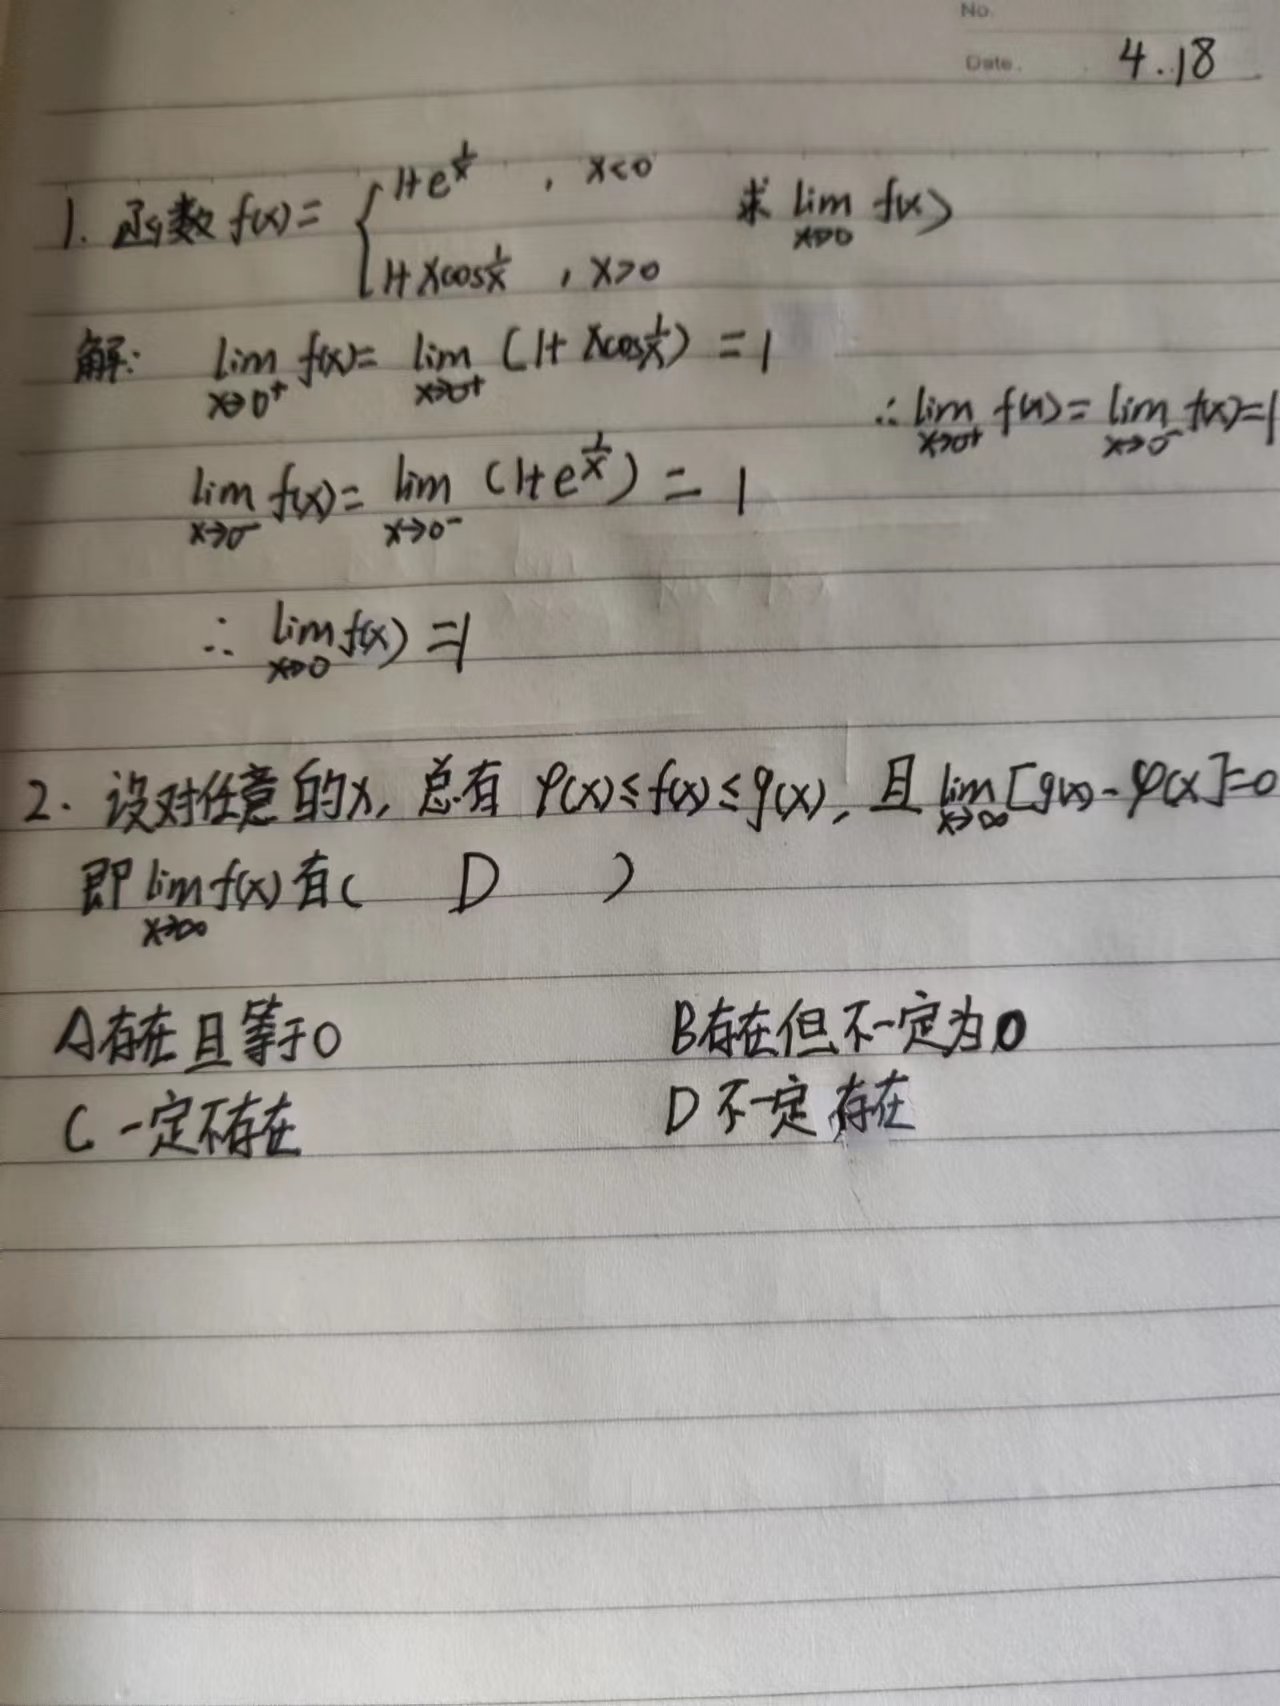 No.
Date. 4.18
1. 函数 f(x) = { 1+e^{1/x} , x<0 求 lim_{x→0} f(x)
1+xcos1/x , x>0
解: lim_{x→0⁺} f(x) = lim_{x→0⁺} (1+xcos1/x) = 1
∴ lim_{x→0⁺} f(x) = lim_{x→0⁻} f(x) = 1
lim_{x→0⁻} f(x) = lim_{x→0⁻} (1+e^{1/x}) = 1
∴ lim_{x→0} f(x) = 1
2. 设对任意的x, 总有 φ(x)≤f(x)≤g(x), 且 lim_{x→∞} [g(x)-φ(x)]=0
即 lim_{x→∞} f(x) 有( D )
A存在且等于0 B存在但不一定为0
C 一定不存在 D 不一定存在